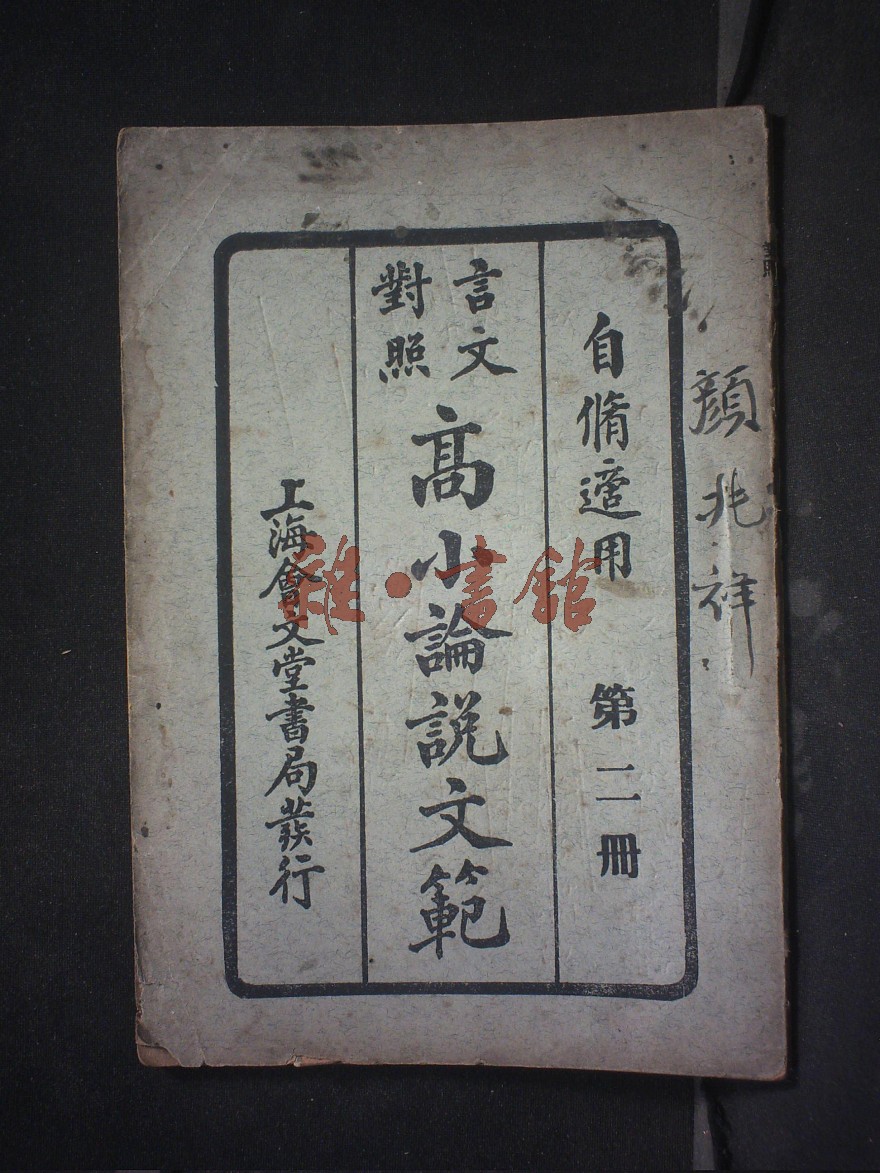 顏兆祥
自脩適用 第二冊
言文
對照
高小論説文範
上海會文堂書局發行
雜·書館